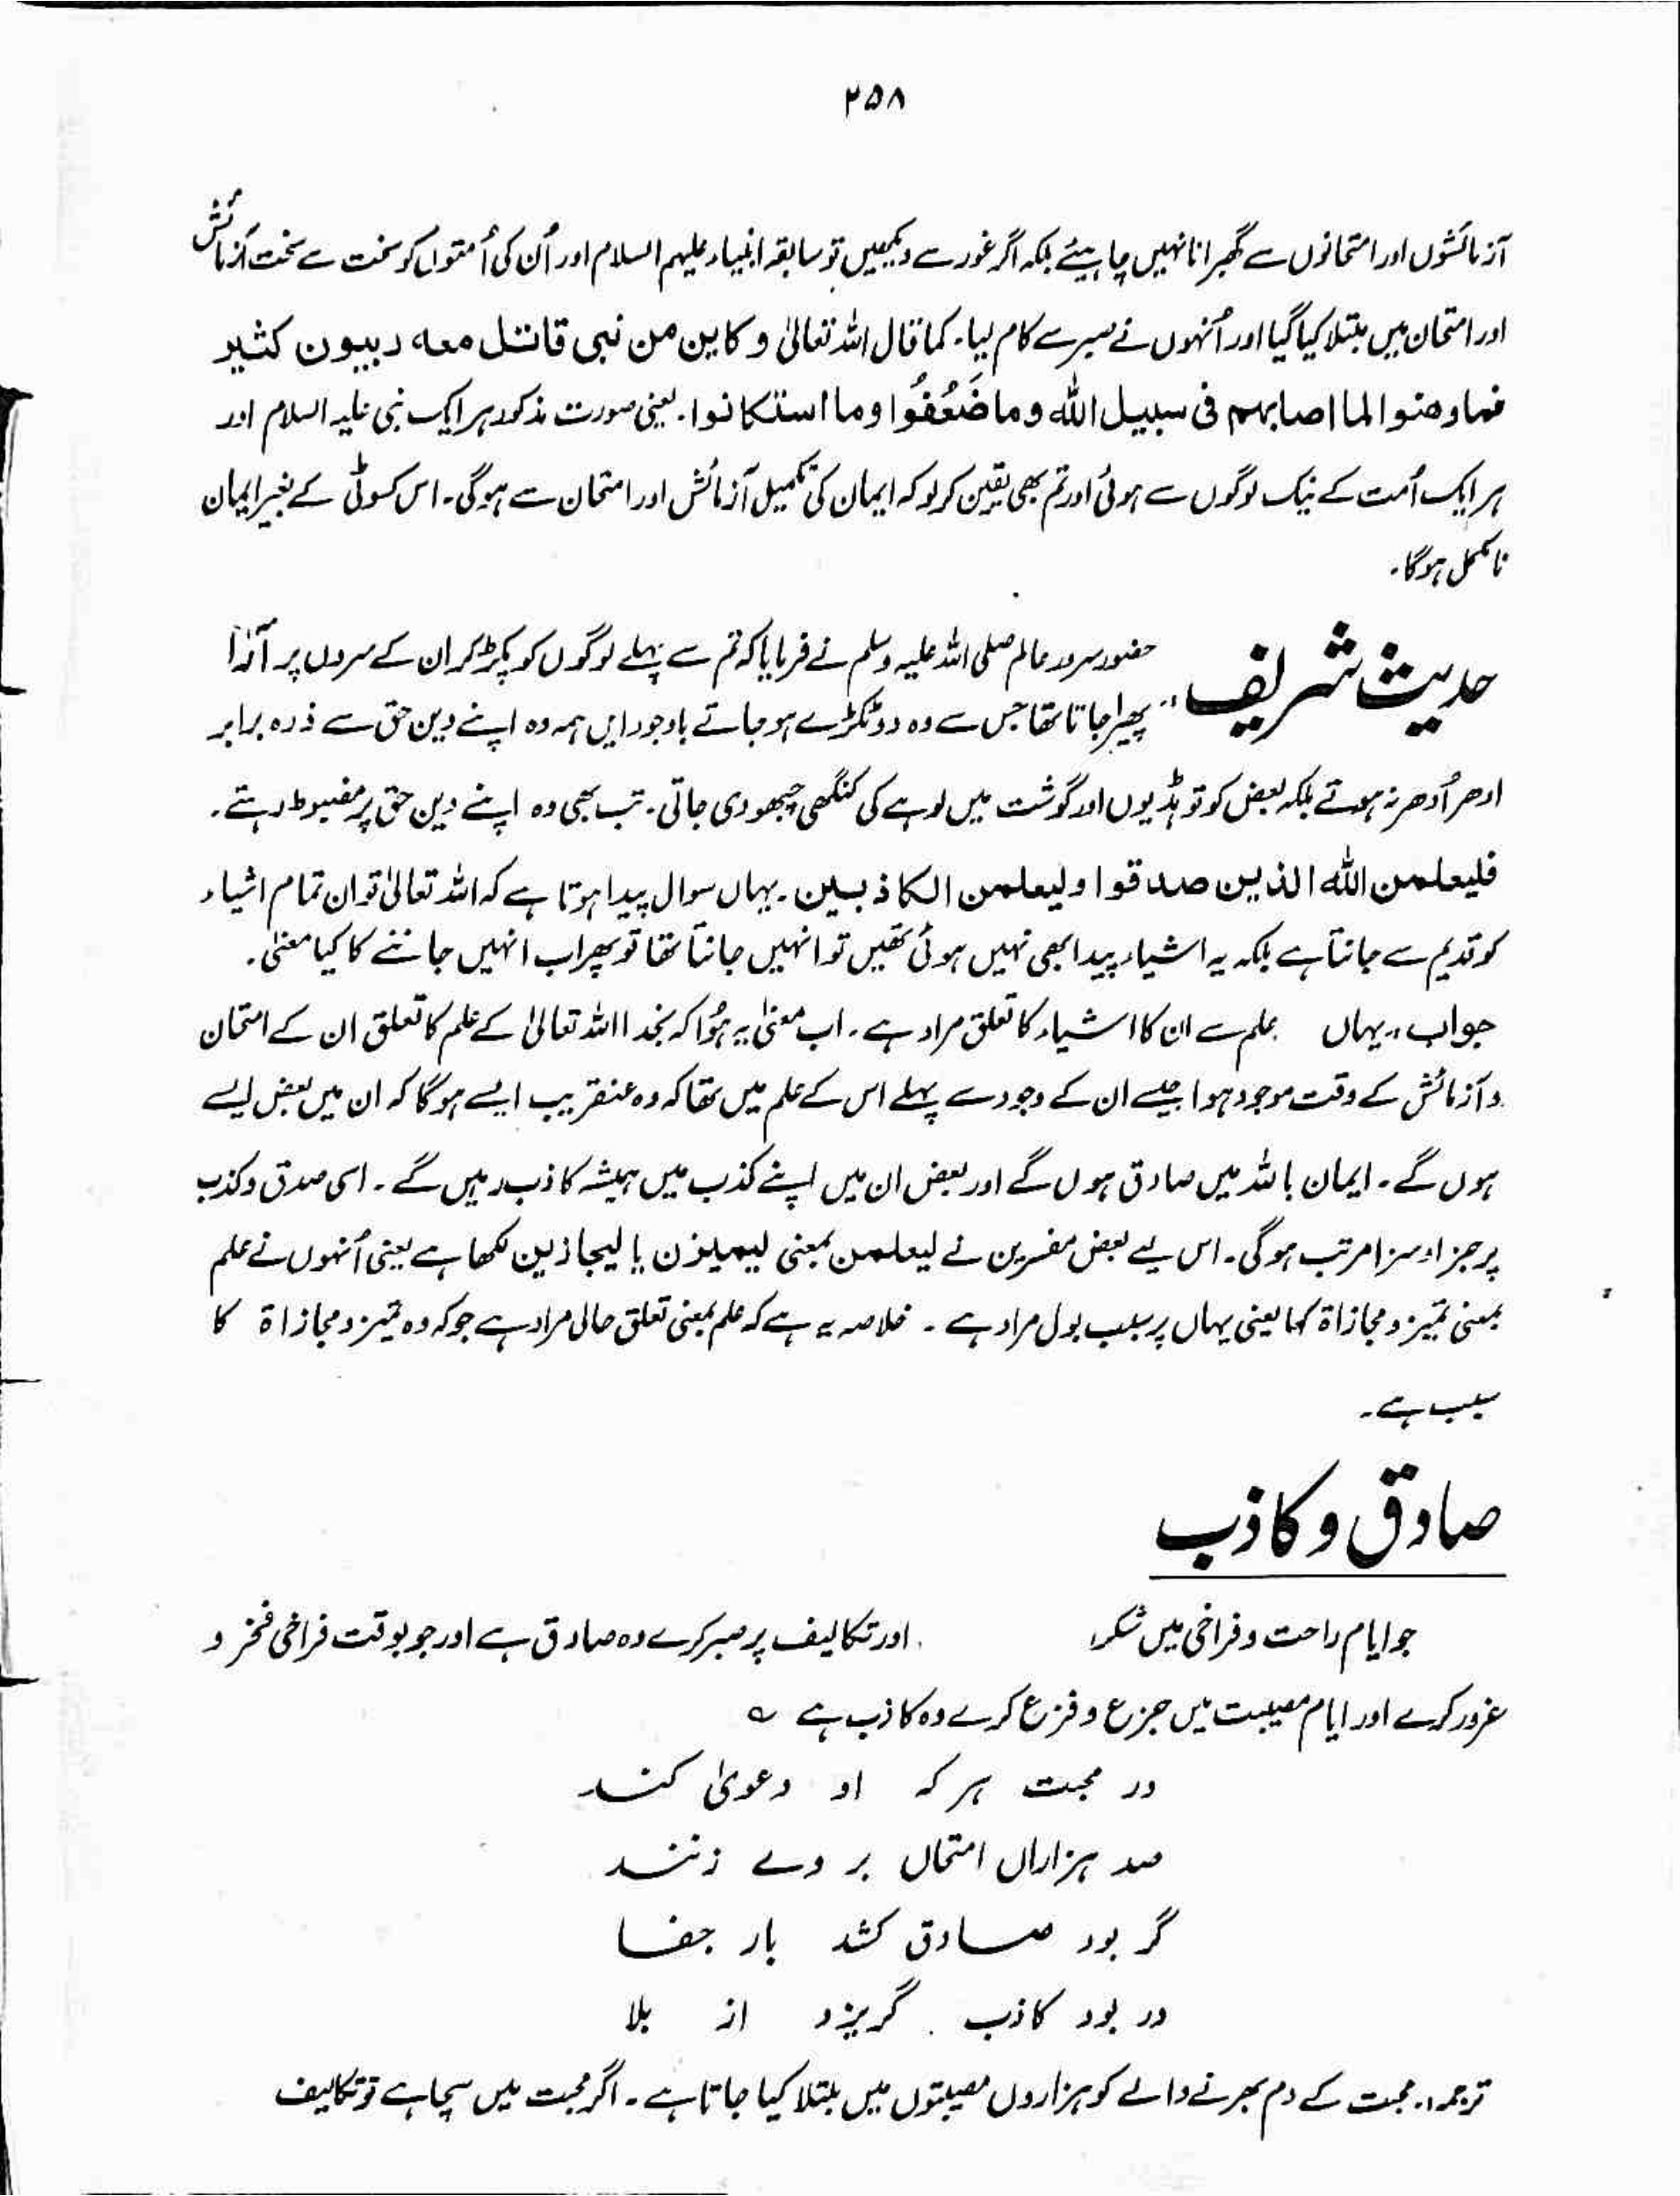 ۲۵۸
آزمائشوں اور امتحانوں سے گھبرانا نہیں چاہیئے بلکہ اگر غور سے دیکھیں تو سابقہ انبیاء علیہم السلام اور اُن کی اُمتوں کو سخت سے سخت آزمائش
اور امتحان میں مبتلا کیا گیا اور اُنہوں نے صبر سے کام لیا۔ کما قال اللہ تعالیٰ و کاین من نبی قاتل معہ ربیون کثیر
فما وھنوا لما اصابہم فی سبیل اللہ وما ضَعُفُوا وما استکانوا۔ یعنی صورت مذکور ہر ایک نبی علیہ السلام اور
ہر ایک اُمت کے نیک لوگوں سے ہوئی اور تم بھی یقین کر لو کہ ایمان کی تکمیل آزمائش اور امتحان سے ہوگی۔ اس کسوٹی کے بغیر ایمان
نامکمل ہوگا۔
حدیث شریف
حضور سرور عالم صلی اللہ علیہ وسلم نے فرمایا کہ تم سے پہلے لوگوں کو پکڑ کر ان کے سروں پر آرا
پھیرا جاتا تھا جس سے وہ دو ٹکڑے ہو جاتے باوجود ایں ہمہ وہ اپنے دین حق سے ذرہ برابر
ادھر اُدھر نہ ہوتے بلکہ بعض کو تو ہڈیوں اور گوشت میں لوہے کی کنگھی چبھو دی جاتی۔ تب بھی وہ اپنے دین حق پر مضبوط رہتے۔
فلیعلمن اللہ الذین صدقوا ولیعلمن الکاذبین۔ یہاں سوال پیدا ہوتا ہے کہ اللہ تعالیٰ تو ان تمام اشیاء
کو قدیم سے جانتا ہے بلکہ یہ اشیاء پیدا بھی نہیں ہوئی تھیں تو انہیں جانتا تھا تو پھر اب انہیں جاننے کا کیا معنیٰ۔
جواب:۔ یہاں علم سے ان کا اشیاء کا تعلق مراد ہے۔ اب معنیٰ یہ ہُوا کہ بخدا اللہ تعالیٰ کے علم کا تعلق ان کے امتحان
و آزمائش کے وقت موجود ہوا جیسے ان کے وجود سے پہلے اس کے علم میں تھا کہ وہ عنقریب ایسے ہوگا کہ ان میں بعض ایسے
ہوں گے۔ ایمان باللہ میں صادق ہوں گے اور بعض ان میں اپنے کذب میں ہمیشہ کاذب رہیں گے۔ اسی صدق و کذب
پر جزا و سزا مرتب ہوگی۔ اس لیے بعض مفسرین نے لیعلمن بمعنی لیمیزن یا لیجازین لکھا ہے یعنی اُنہوں نے علم
بمعنی تمیز و مجازاۃ کہا یعنی یہاں پر سبب بول مراد ہے۔ خلاصہ یہ ہے کہ علم بمعنی تعلق حالی مراد ہے جو کہ وہ تمیز و مجازاۃ کا
سبب ہے۔
صادق و کاذب
جو ایام راحت و فراخی میں شکر اور تکالیف پر صبر کرے وہ صادق ہے اور جو بوقت فراخی فخر و
غرور کرے اور ایام مصیبت میں جزع و فزع کرے وہ کاذب ہے ؎
در محبت ہر کہ او دعویٰ کند
صد ہزاراں امتحاں بر وے زنند
گر بود صادق کشد بار جفا
ور بود کاذب گریزد از بلا
ترجمہ:۔ محبت کے دم بھرنے والے کو ہزاروں مصیبتوں میں مبتلا کیا جاتا ہے۔ اگر محبت میں سچا ہے تو تکالیف